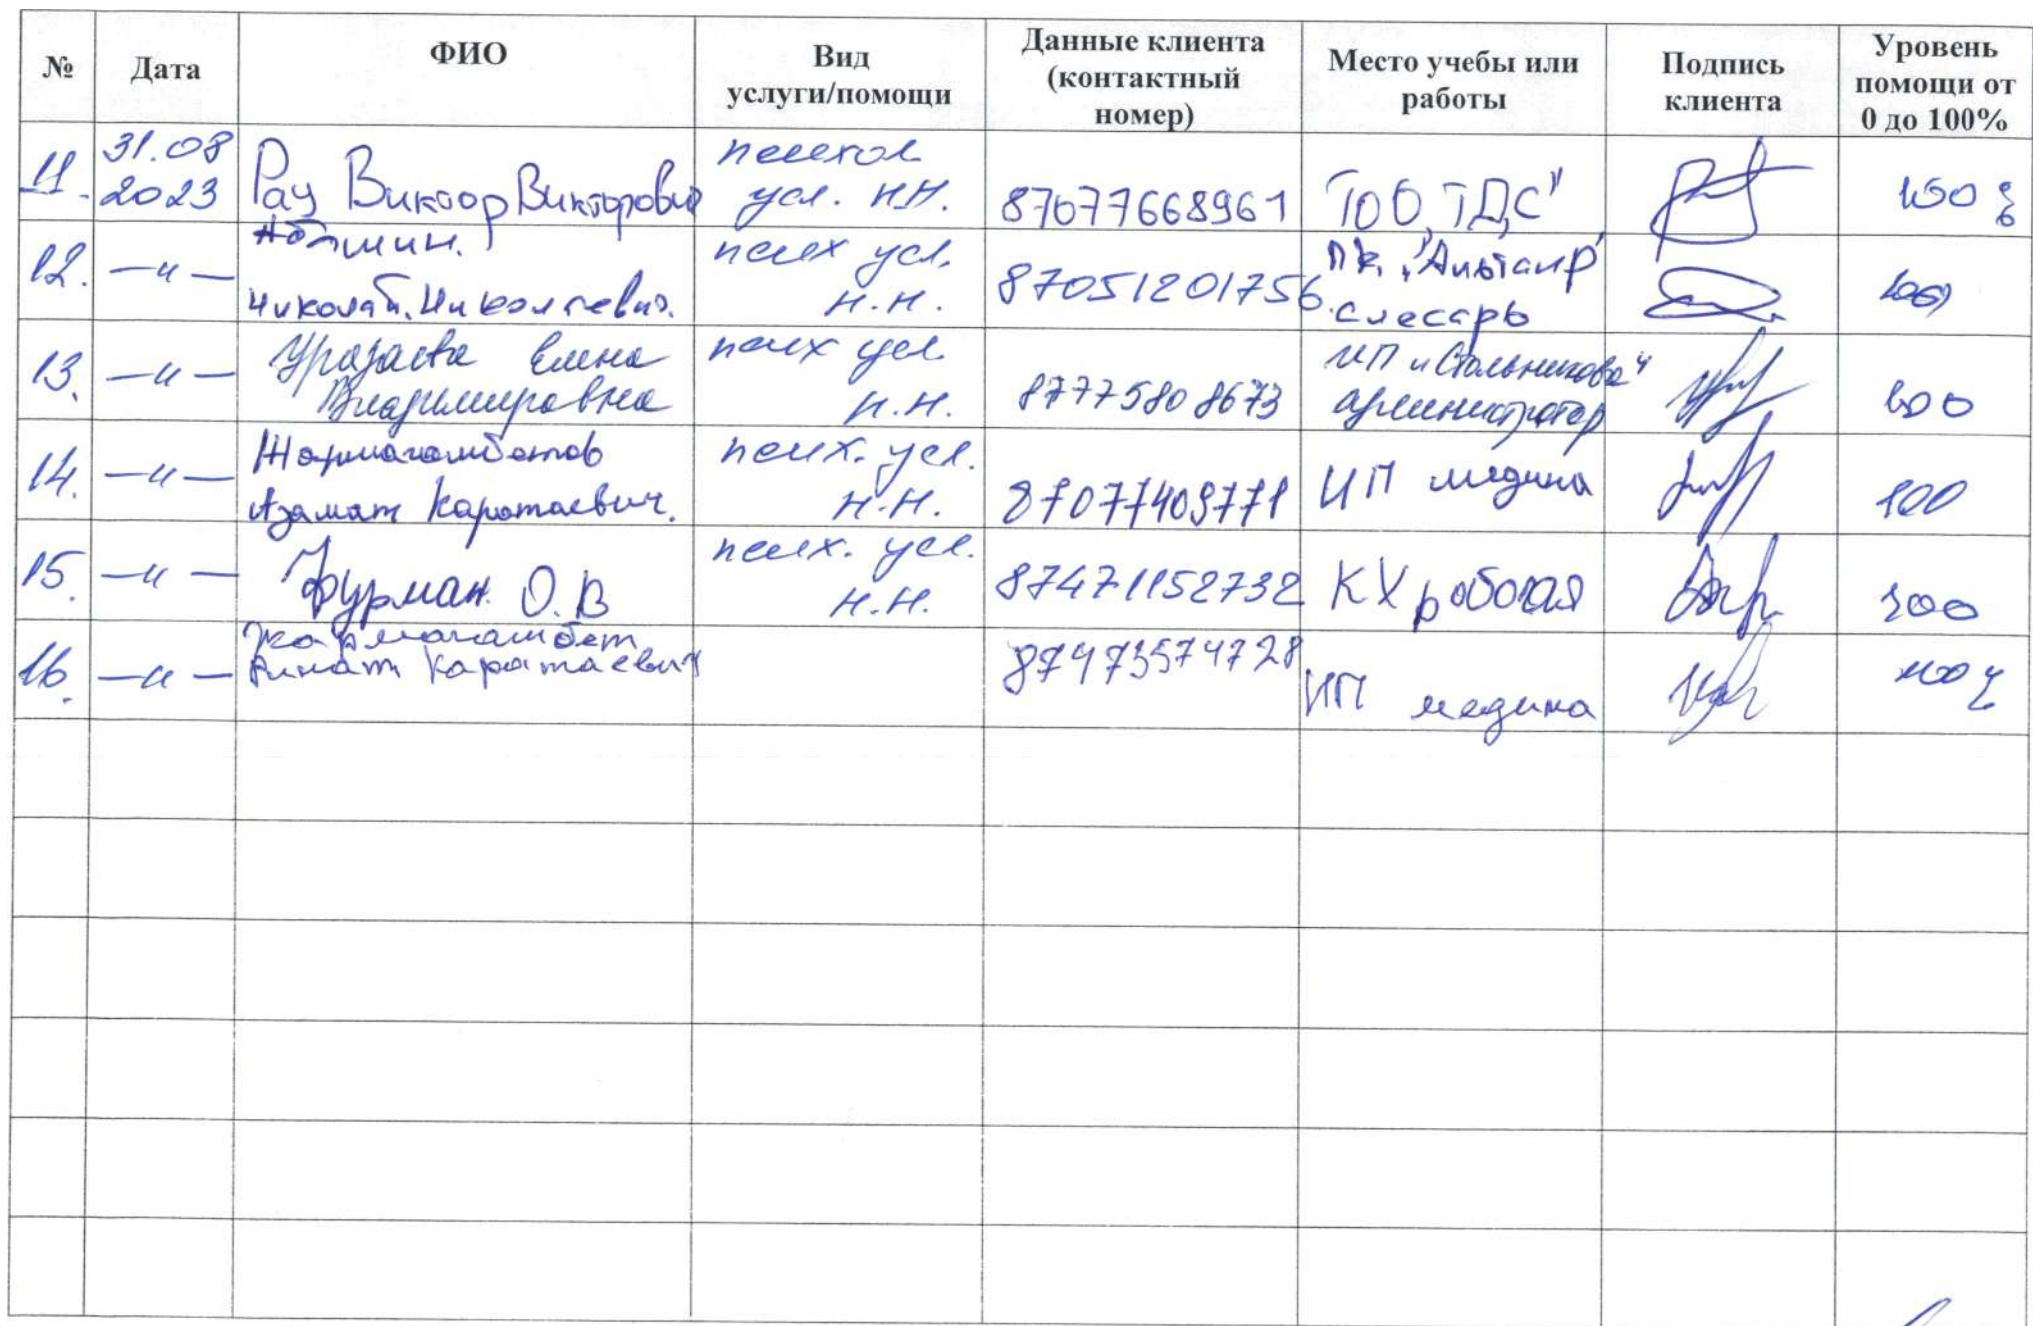 № Дата ФИО Вид услуги/помощи Данные клиента (контактный номер) Место учебы или работы Подпись клиента Уровень помощи от 0 до 100%
11. 31.08 2023 Рау Виктор Викторович психол усл. Н.Н. 87077668961 ТОО "ТДС" 100%
12. —и— Николай Николаевич. псих усл. н.н. 87051201756 ПК "Альтаир" слесарь 100
13. —и— Уразаева Елена Владимировна псих усл н.н. 87775808673 ИП "Стольникова" администратор 100
14. —и— Жармагамбетов Азамат Каратаевич. псих. усл. н.н. 87077409771 ИП медина 100
15. —и— Фурман О.В псих. усл. н.н. 87471152732 КХ 100
16. —и— Жармагамбет Ринат Каратаевич 87473574728 ИП медина 100%